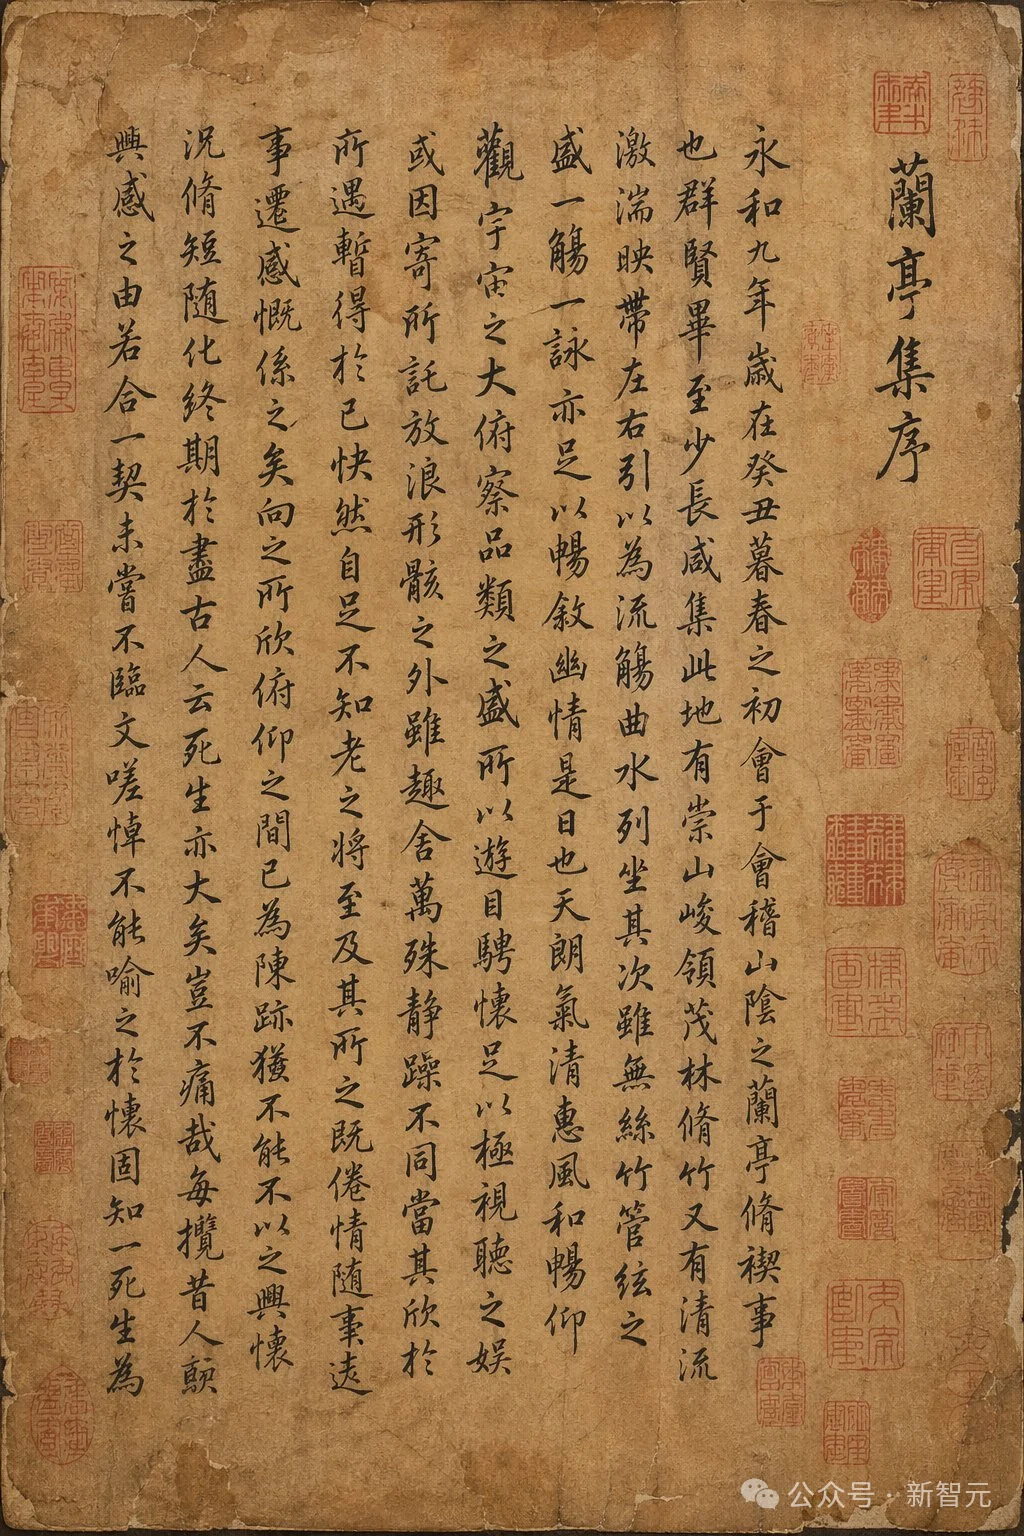 蘭亭集序
永和九年歲在癸丑暮春之初會于會稽山陰之蘭亭脩禊事
也群賢畢至少長咸集此地有崇山峻領茂林脩竹又有清流
激湍映帶左右引以為流觴曲水列坐其次雖無絲竹管絃之
盛一觴一詠亦足以暢敘幽情是日也天朗氣清惠風和暢仰
觀宇宙之大俯察品類之盛所以遊目騁懷足以極視聽之娛
或因寄所託放浪形骸之外雖趣舍萬殊静躁不同當其欣於
所遇暫得於己快然自足不知老之將至及其所之既倦情隨事
事遷感慨係之矣向之所欣俯仰之間已為陳跡不能不以之興懷
況脩短隨化終期於盡古人云死生亦大矣豈不痛哉每攬昔人
興感之由若合一契未嘗不臨文嗟悼不能喻之於懷固知一死生為
公众号 · 新智元